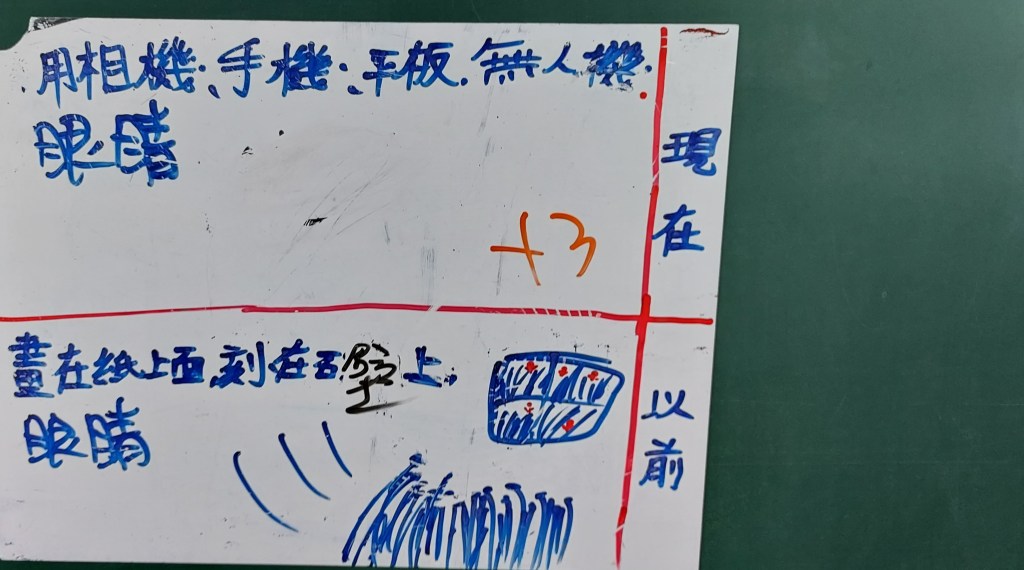 用相機、手機、平板、無人機、
眼睛
+3
現在
畫在紙上面,刻在石壁上,
眼睛
以前